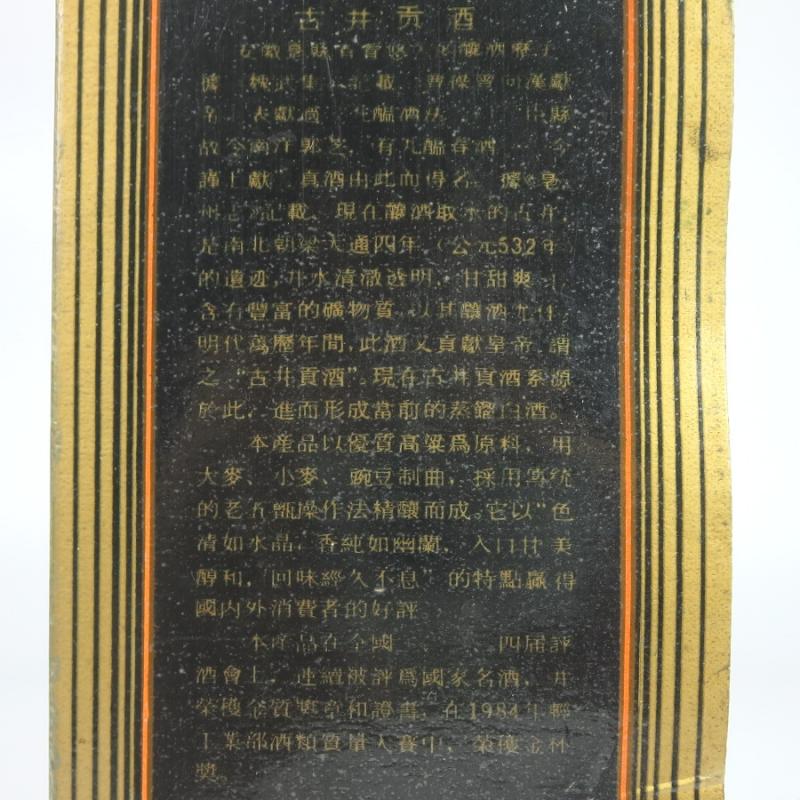 古井贡酒
安徽亳縣有着悠久的釀酒歷
據 魏武集 記載 曹操曾向漢獻
表獻過 九醞酒法 縣
故令南陽郭芝，有九醞春酒 今
謹上獻” 貢酒由此而得名。據《亳
州志》記載，現在釀酒取水的古井，
是南北朝梁大通四年（公元532年）
的遺迹，井水清澈透明，甘甜爽
含有豐富的礦物質，以其釀酒尤佳，
明代萬歷年間，此酒又貢獻皇帝，謂
之“古井貢酒”。現在古井貢酒系源
於此，進而形成當前的蒸鎦白酒。
本産品以優質高粱爲原料，用
大麥、小麥、豌豆制曲，採用傳統
的老五甑操作法精釀而成。它以“色
清如水晶，香純如幽蘭，入口甘美
醇和，回味經久不息”的特點贏得
國内外消費者的好評
本産品在全國 四届評
酒會上，連續被評爲國家名酒，并
榮獲金質獎章和證書，在1984年輕
工業部酒類質量大賽中，榮獲金杯
獎。